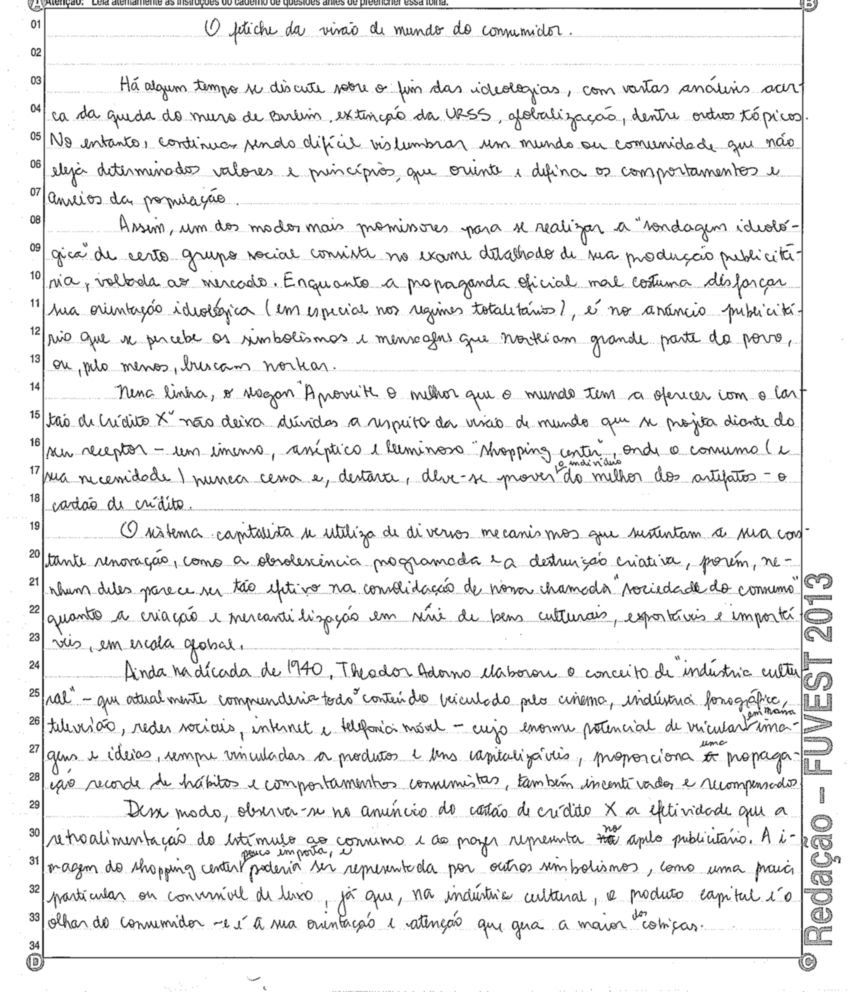 Atenção: Leia atentamente as instruções do caderno de questões antes de preencher essa folha.
B
01 O fetiche da visão de mundo do consumidor.
02
03 Há algum tempo se discute sobre o fim das ideologias, com vastas análises acer-
04 ca da queda do muro de Berlim, extinção da URSS, globalização, dentre outros tópicos.
05 No entanto, continua sendo difícil vislumbrar um mundo ou comunidade que não
06 eleja determinados valores e princípios, que oriente e defina os comportamentos e
07 anseios da população.
08 Assim, um dos modos mais promissores para se realizar a "sondagem ideoló-
09 gica" de certo grupo social consista no exame detalhado de sua produção publicitá-
10 ria, voltada ao mercado. Enquanto a propaganda oficial mal costuma disfarçar
11 sua orientação ideológica (em especial nos regimes totalitários), é no anúncio publicitá-
12 rio que se percebe os simbolismos e mensagens que norteiam grande parte do povo,
13 ou, pelo menos, buscam nortear.
14 Nessa linha, o slogan "Aproveite o melhor que o mundo tem a oferecer com o Car-
15 tão de Crédito X" não deixa dúvidas a respeito da visão de mundo que se projeta diante do
16 seu receptor – um imenso, asséptico e luminoso "shopping center", onde o consumo (e
17 sua necessidade) nunca cessa e, destarte, deve-se prover o indivíduo do melhor dos artefatos – o
18 cartão de crédito.
19 O sistema capitalista se utiliza de diversos mecanismos que sustentam a sua cons-
20 tante renovação, como a obsolescência programada e a destruição criativa, porém, ne-
21 nhum deles parece ser tão efetivo na consolidação de nossa chamada "sociedade do consumo"
22 quanto a criação e mercantilização em série de bens culturais, exportáveis e importá-
23 veis, em escala global.
24 Ainda na década de 1940, Theodor Adorno elaborou o conceito de "indústria cultu
25 ral" – que atualmente compreenderia todo o conteúdo veiculado pelo cinema, indústria fonográfica,
26 televisão, redes sociais, internet e telefonia móvel – cujo enorme potencial de veicular em massa ima-
27 gens e ideias, sempre vinculadas a produtos e bens capitalizáveis, proporciona uma propaga-
28 ção recorde de hábitos e comportamentos consumistas, também incentivados e recompensados
29 Desse modo, observa-se no anúncio do cartão de crédito X a efetividade que a
30 retroalimentação do estímulo ao consumo e ao prazer representa no apelo publicitário. A i-
31 magem do shopping center pouco importa, e poderia ser representada por outros simbolismos, como uma praia
32 particular ou conversível de luxo, já que, na indústria cultural, o produto capital é o
33 olhar do consumidor – e é a sua orientação e atenção que gera a maior das cobiças.
34
D
C
Redação – FUVEST 2013